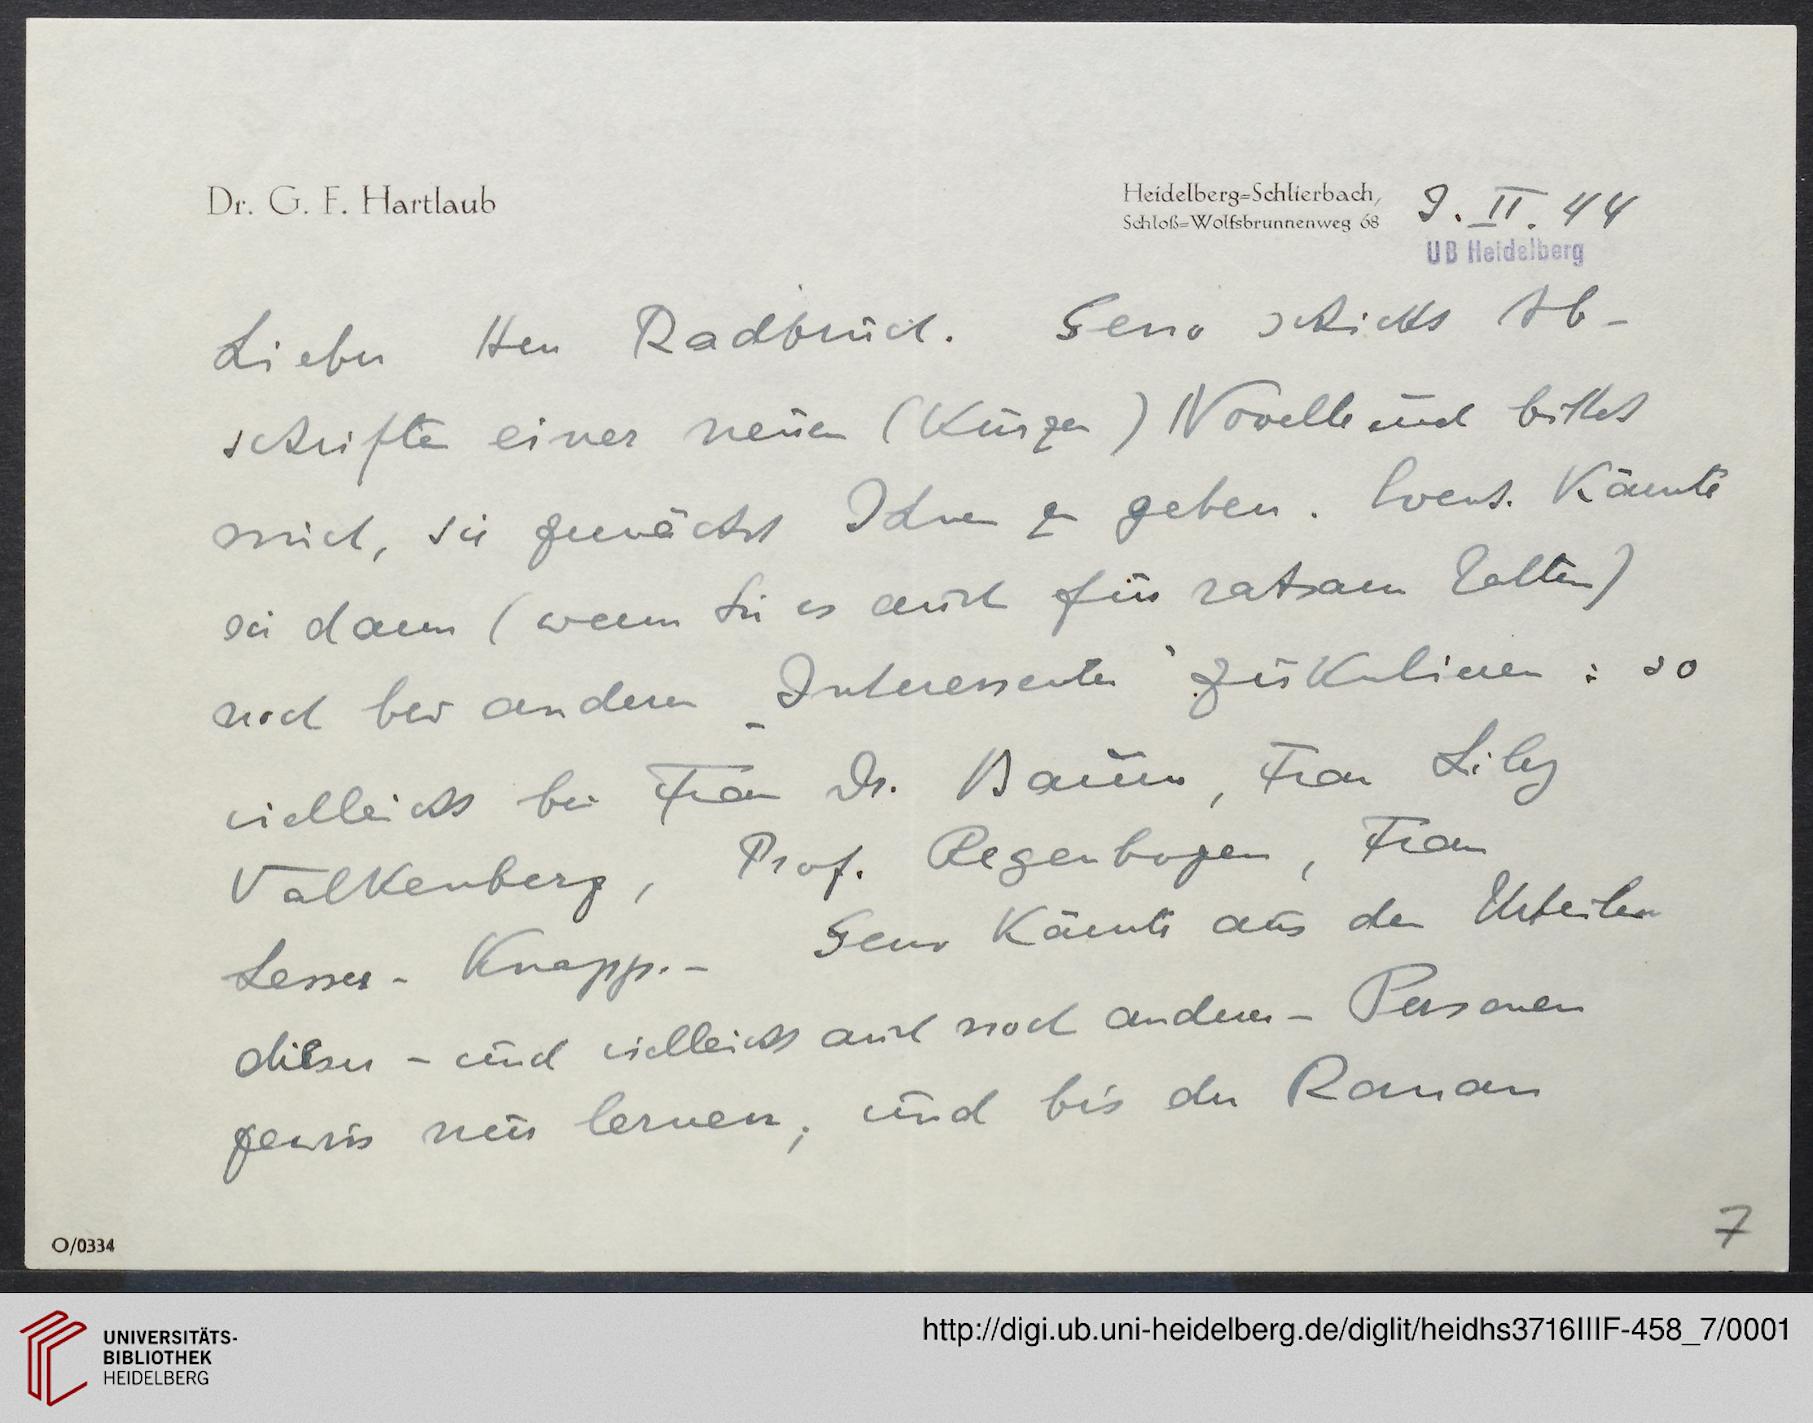 Dr. G. F. Hartlaub
Heidelberg=Schlierbach,
Schloß=Wolfsbrunnenweg 68
9. II. 44
UB Heidelberg
Lieber Herr Radbruch. Geno schickt Ab-
schriften einer neuen (kurzen) Novelle und bittet
mich, sie zunächst Ihnen zu geben. Event. könnte
sie dann (wenn Sie es auch für ratsam halten)
noch bei anderen „Interessenten" zirkulieren: so
vielleicht bei Frau Dr. Baum, Frau Lily
Valkenberg, Prof. Regenbogen, Frau
Lesser-Knapp.- Geno könnte aus den Urteilen
dieser - und vielleicht auch noch anderer - Personen
gewiss nur lernen, und bis der Roman
O/0334
7
UNIVERSITÄTS-
BIBLIOTHEK
HEIDELBERG
http://digi.ub.uni-heidelberg.de/diglit/heidhs3716IIIF-458_7/0001